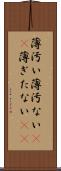 薄汚い薄汚ない
薄ぎたない